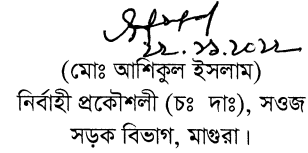 ২২.১১.২০২২
(মোঃ আশিকুল ইসলাম)
নির্বাহী প্রকৌশলী (চঃ দাঃ), সওজ
সড়ক বিভাগ, মাগুরা।